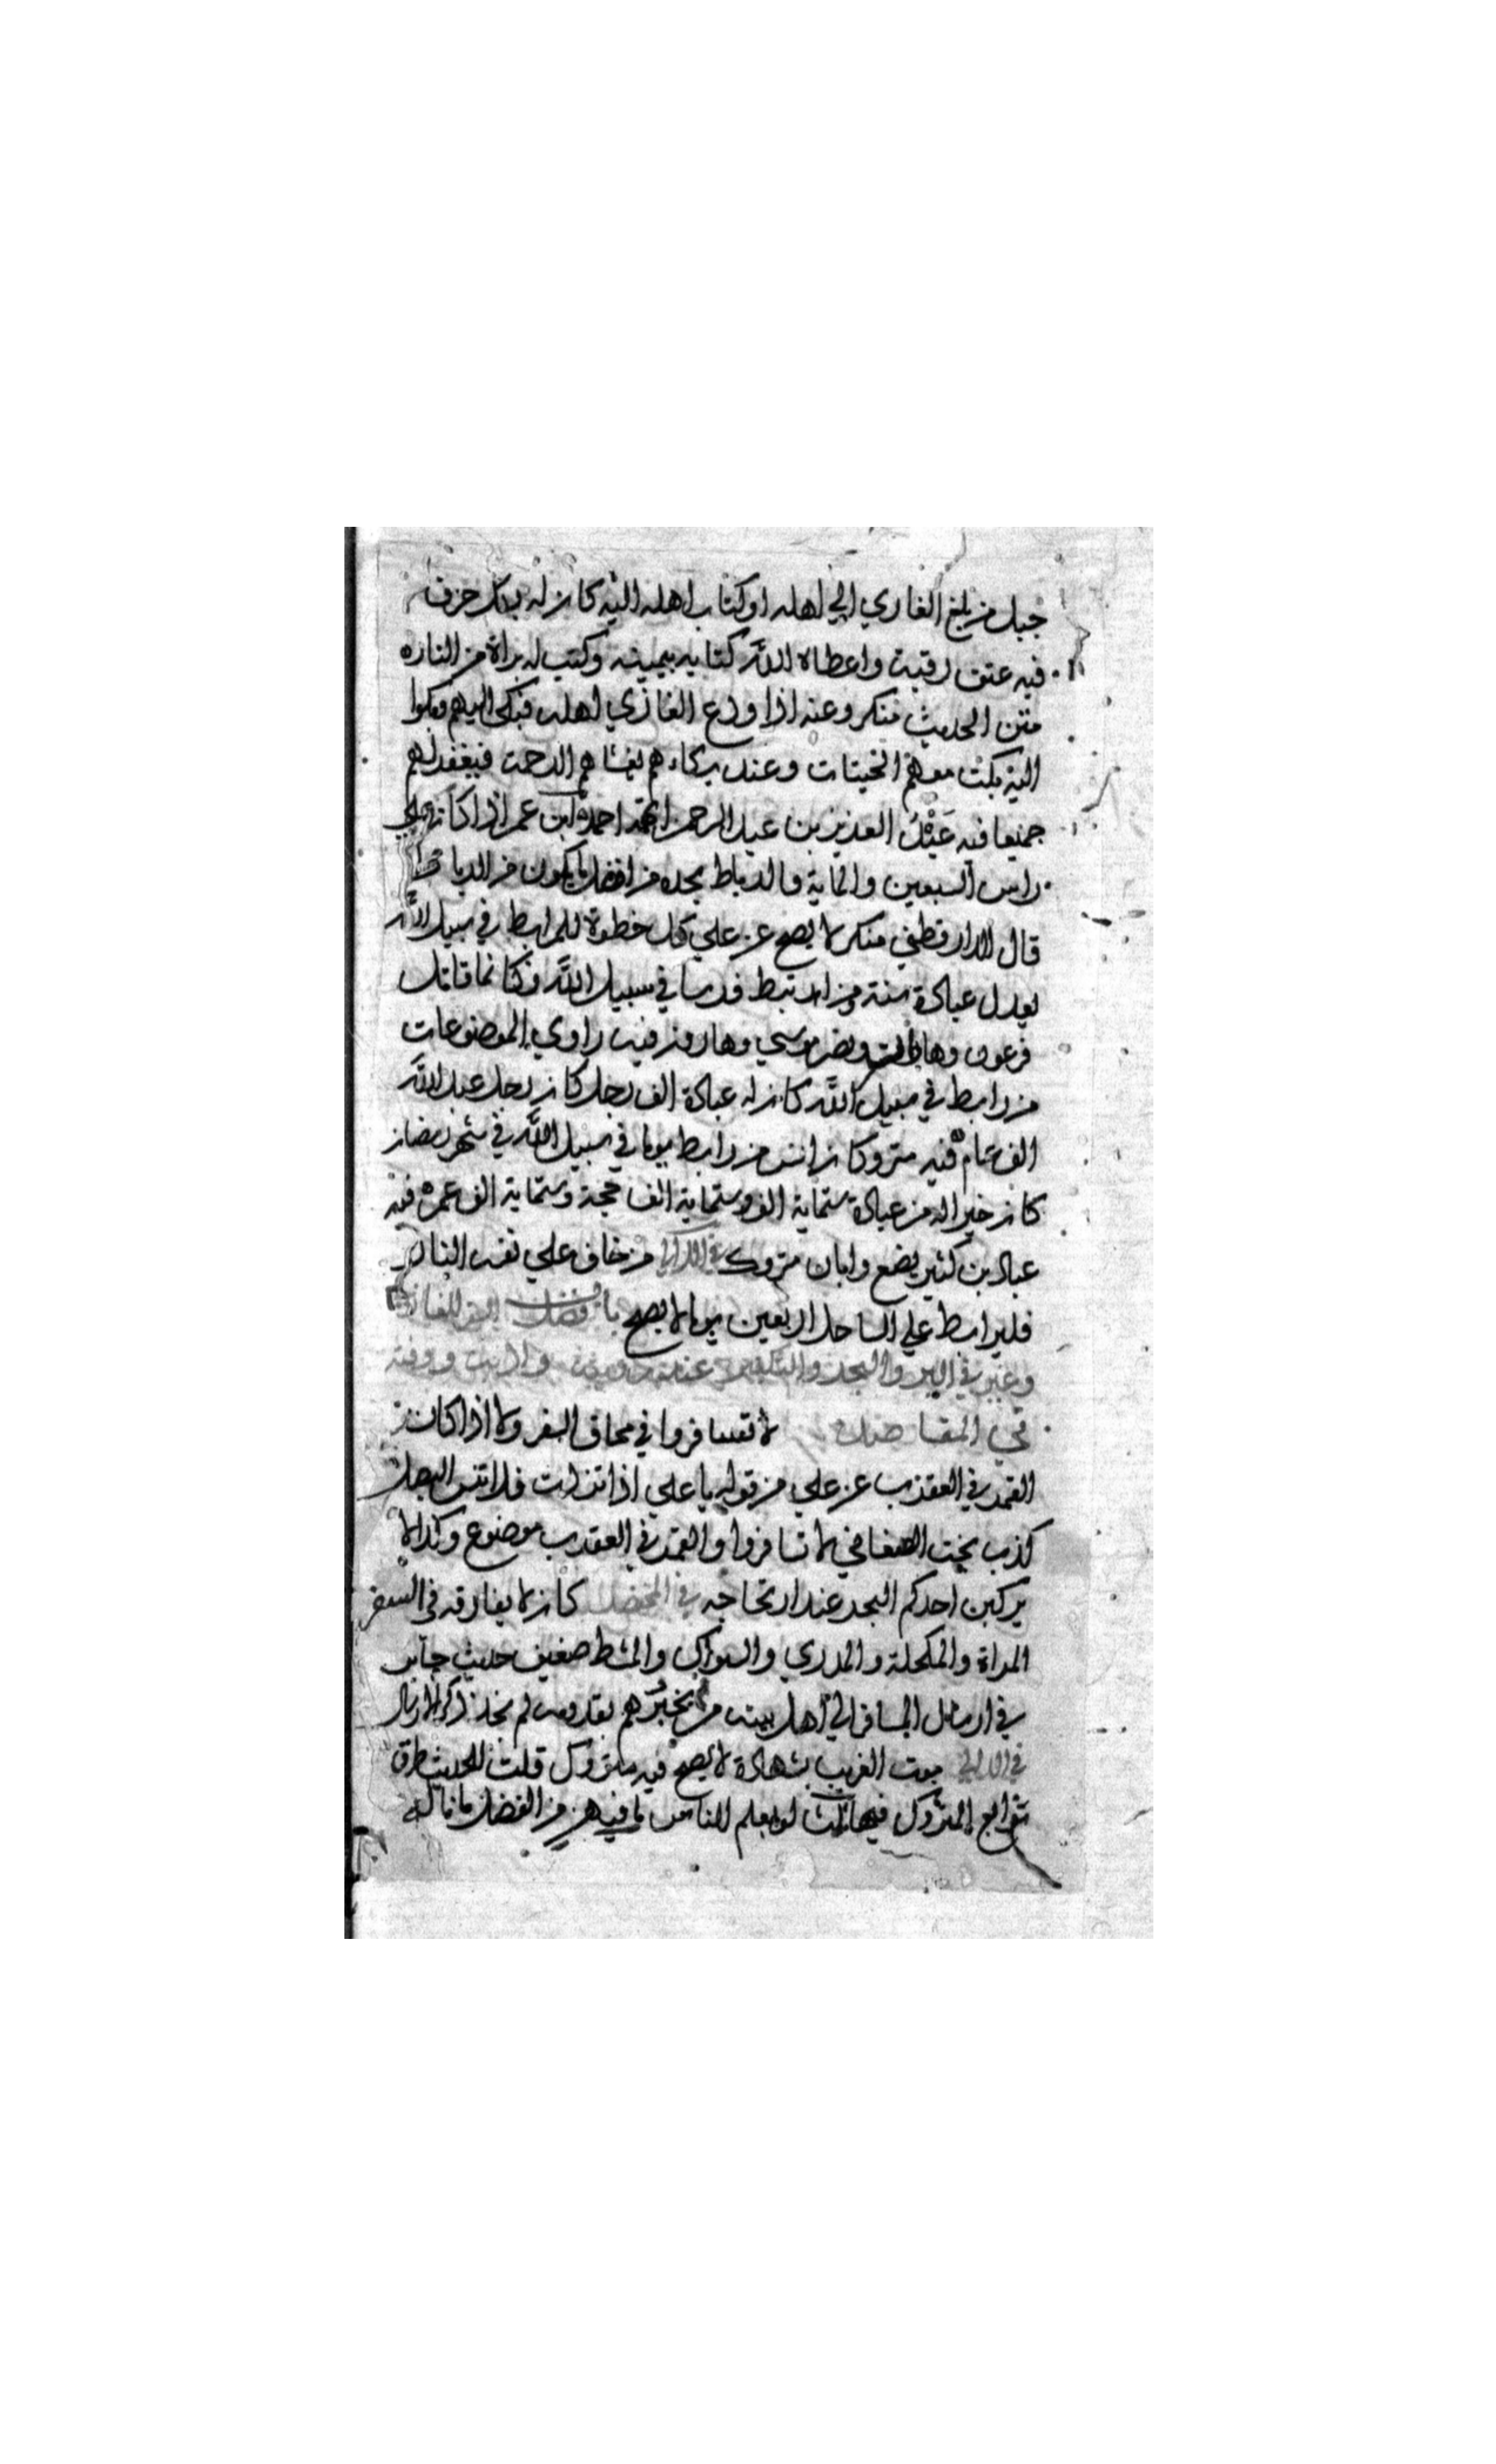 جبل من بلغ الغازي الي اهله او كتاب اهله اليه كان له بكل حرف
فيه عتق رقبة واعطاه الله كتابه بيمينه وكتب له براة من النار ه
متن الحديث منكر وعنه اذا ودع الغازي اهله فبكي اليهم وبكوا
اليه بكت معهم الحيتان وعند بكاءهم يغشاهم الرحمة فيغفر لهم
جميعا فيه عبد العزيز بن عبد الرحمن اتهمه احمد ابن عمر اذا كان علي
راس السبعين والماية فالرباط بجده من افضل ما يكون من الرباط
قال الدارقطني منكر لا يصح عن علي كل خطوة للمرابط في سبيل الله
يعدل عبادة سنة ومن ارتبط فرسا في سبيل الله فكانما قاتل
فرعون وهامان ونصر موسي وهارون فيه راوي الموضوعات
من رابط في سبيل الله كان له عبادة الف رجل كل رجل عبد الله
الف عام فيه متروكان انس من رابط يوما في سبيل الله في شهر رمضان
كان خيرا له من عبادة ستماية الف وستماية الف حجة وستماية الف عمرة فيه
عباد بن كثير يضع وابان متروك في اللالي من خاف علي نفسه النار
فليرابط علي الساحل اربعين يوما لا يصح باب فضل السفر للغازي
وغيره في البر والبحر
في المقاصد لا تسافروا في محاق الشهر ولا اذا كان
القمر في العقرب عن علي من قوله يا علي اذا تزودت فلا تنس البصل
كذب بحت الصغاني لا تسافروا والقمر في العقرب موضوع وكذا لا
يركبن احدكم البحر عند ارتجاجه في المختصر كان لا يفارقه في السفر
المراة والمكحلة والمدري والسواك والمشط ضعيف حديث جابر
في ارسال المسافر الي اهل بيته من يخبرهم بقدومه لم نجد ذكر الارسال
في اللالي موت الغريب شهادة لا يصح فيه متروك قلت للحديث طرق
توابع المتروك فيها ثلث لو يعلم الناس ما فيهن من الفضل ما نالـ